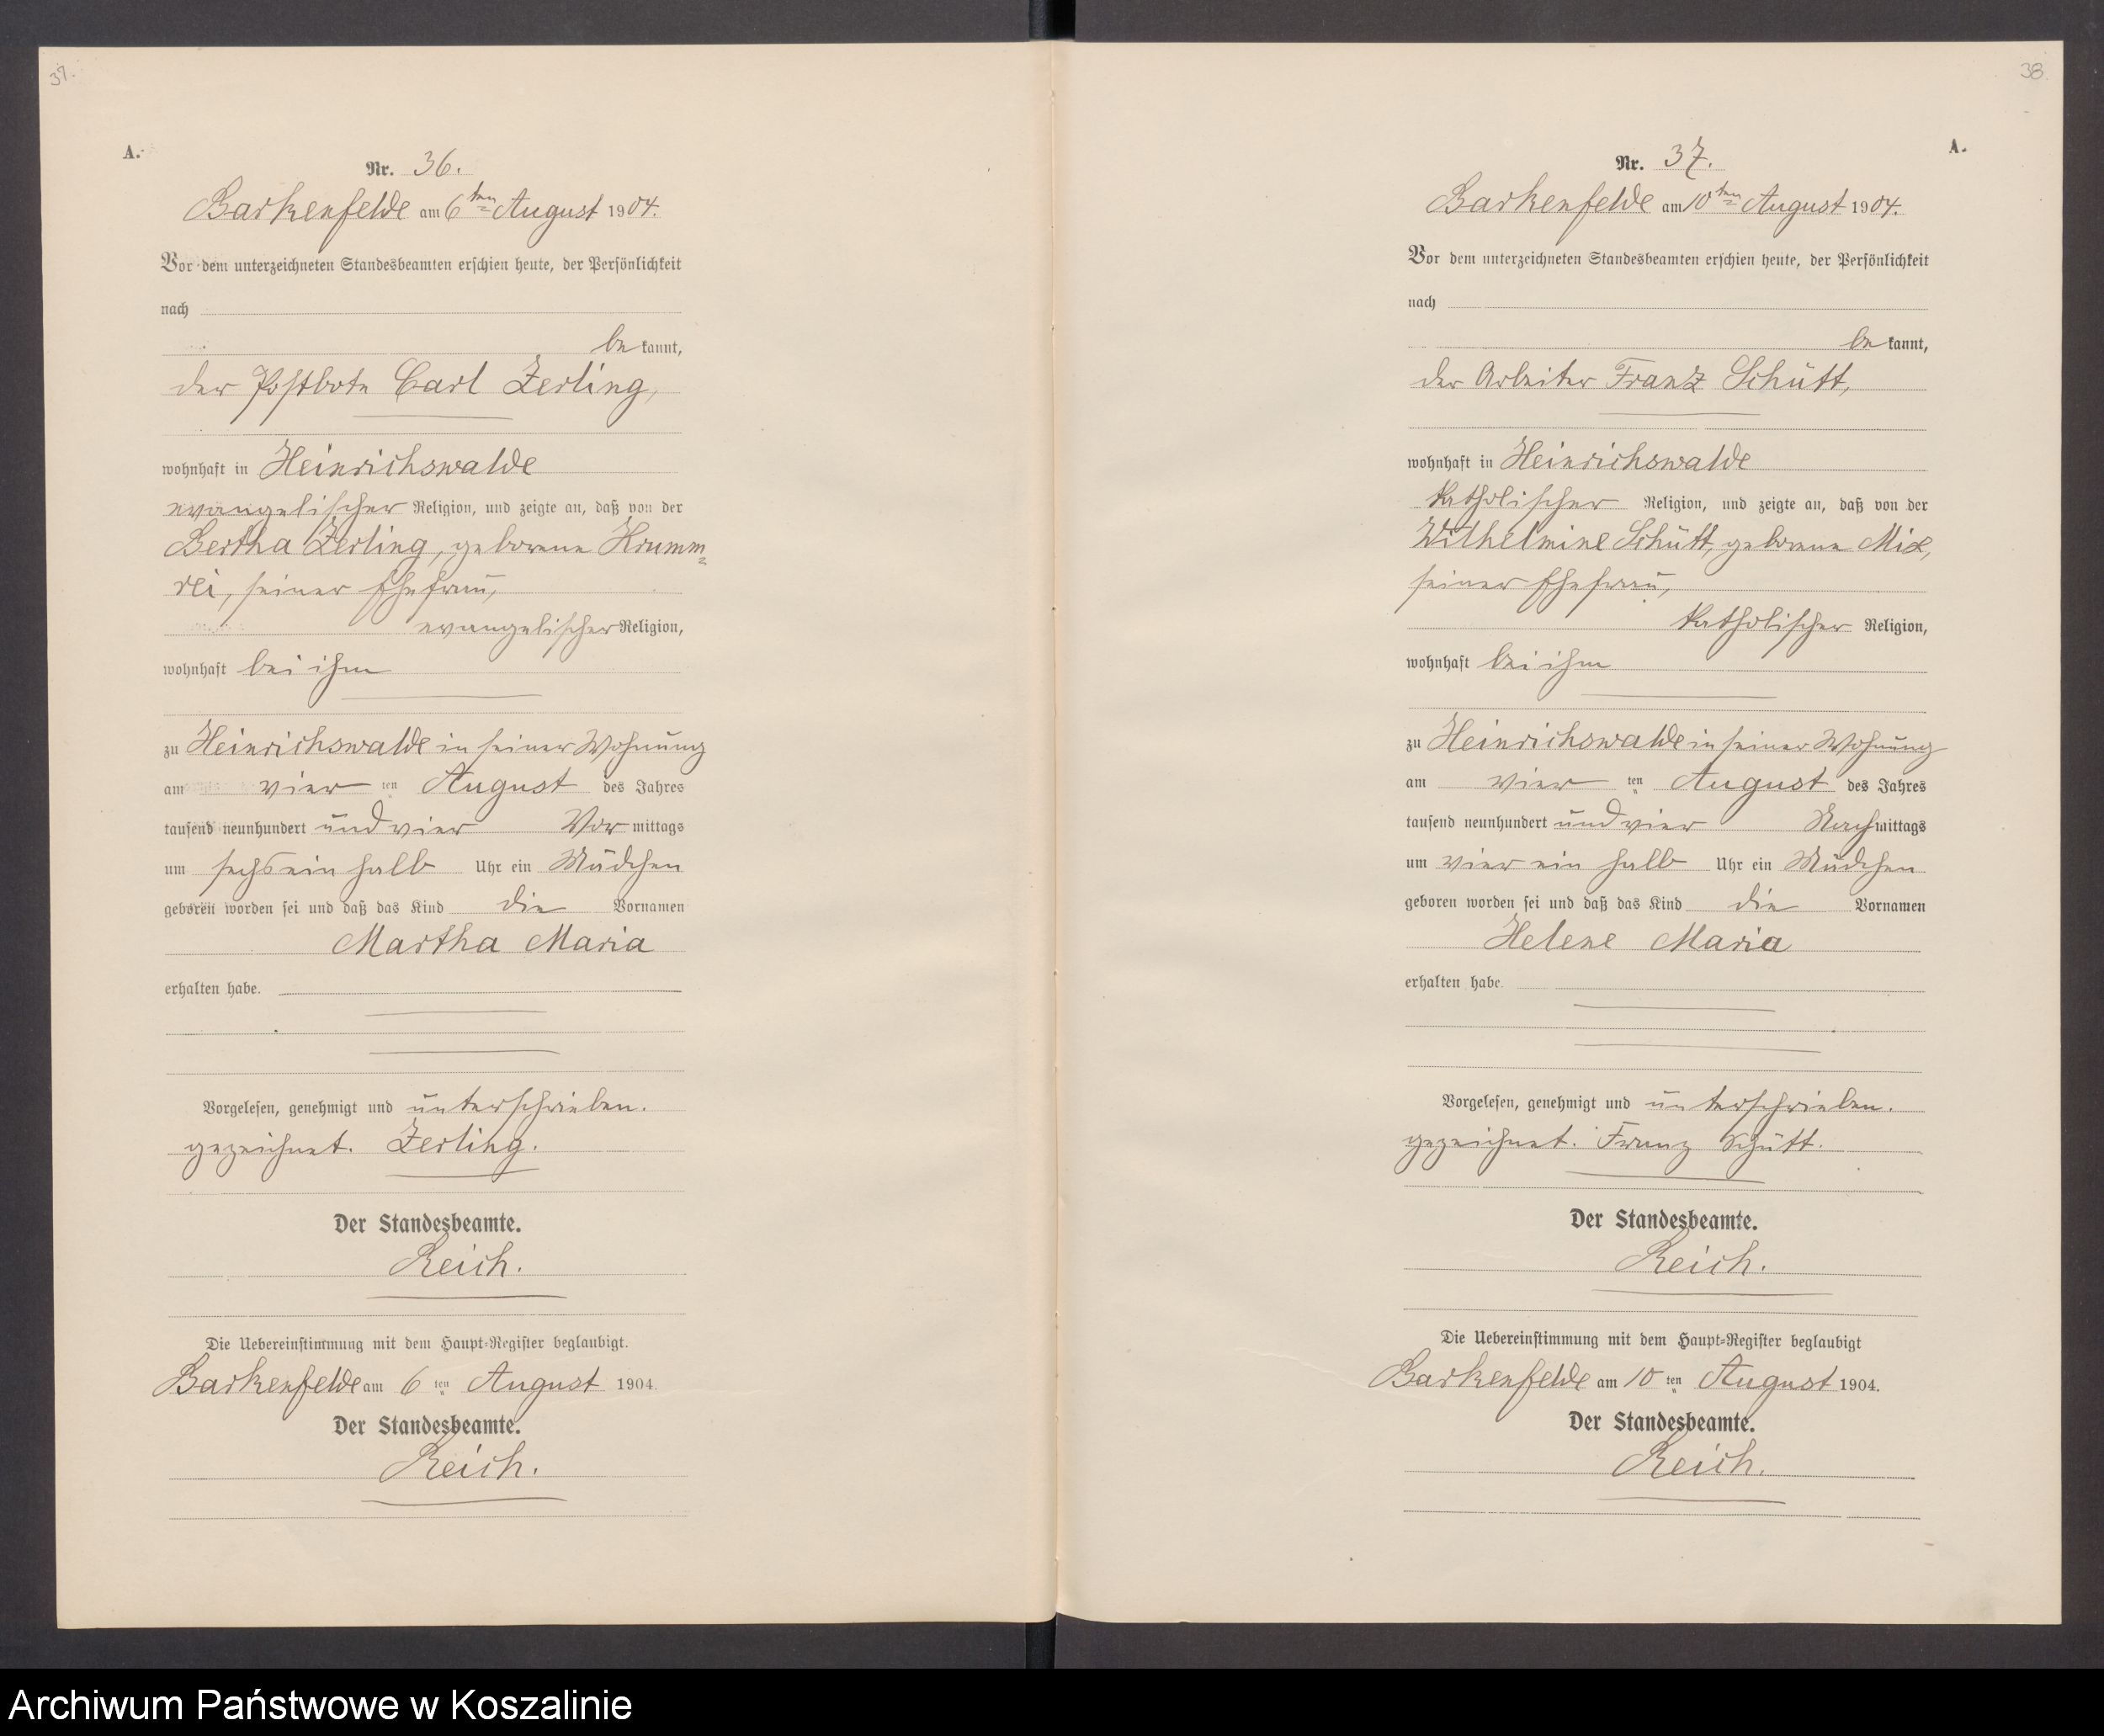 37.
A.
Nr. 36.
Barkenfelde am 6ten August 1904.
Vor dem unterzeichneten Standesbeamten erschien heute, der Persönlichkeit
nach
be kannt,
der Postbote Carl Zerling,
wohnhaft in Heinrichswalde
evangelischer Religion, und zeigte an, daß von der
Bertha Zerling, geborene Krumm=
rei, seiner Ehefrau,
evangelischer Religion,
wohnhaft bei ihm
zu Heinrichswalde in seiner Wohnung
am vier ten August des Jahres
tausend neunhundert und vier Vor mittags
um sechs ein halb Uhr ein Mädchen
geboren worden sei und daß das Kind die Vornamen
Martha Maria
erhalten habe.
Vorgelesen, genehmigt und unterschrieben.
gezeichnet. Zerling.
Der Standesbeamte.
Reich.
Die Uebereinstimmung mit dem Haupt-Register beglaubigt.
Barkenfelde am 6 ten August 1904.
Der Standesbeamte.
Reich.
38.
A.
Nr. 37.
Barkenfelde am 10ten August 1904.
Vor dem unterzeichneten Standesbeamten erschien heute, der Persönlichkeit
nach
be kannt,
der Arbeiter Franz Schütt,
wohnhaft in Heinrichswalde
katholischer Religion, und zeigte an, daß von der
Wilhelmine Schütt, geborene Mix,
seiner Ehefrau,
katholischer Religion,
wohnhaft bei ihm
zu Heinrichswalde in seiner Wohnung
am vier ten August des Jahres
tausend neunhundert und vier Nach mittags
um vier ein halb Uhr ein Mädchen
geboren worden sei und daß das Kind die Vornamen
Helene Maria
erhalten habe.
Vorgelesen, genehmigt und unterschrieben.
gezeichnet. Franz Schütt.
Der Standesbeamte.
Reich.
Die Uebereinstimmung mit dem Haupt-Register beglaubigt
Barkenfelde am 10 ten August 1904.
Der Standesbeamte.
Reich.
Archiwum Państwowe w Koszalinie